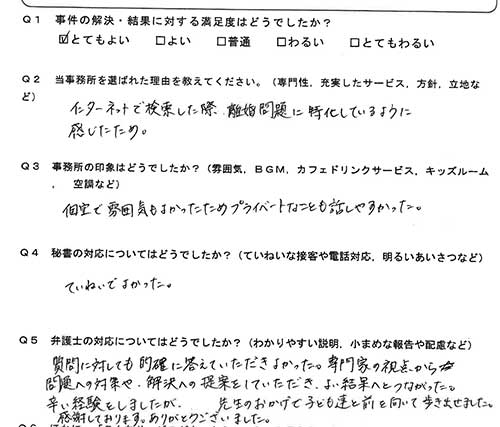 Q1 事件の解決・結果に対する満足度はどうでしたか?
☑とてもよい □よい □普通 □わるい □とてもわるい
Q2 当事務所を選ばれた理由を教えてください。(専門性，充実したサービス，方針，立地な
ど)
インターネットで検索した際、離婚問題に特化しているように
感じたため。
Q3 事務所の印象はどうでしたか?(雰囲気，BGM，カフェドリンクサービス，キッズルーム
， 空調など)
個室で雰囲気もよかったためプライベートなことも話しやすかった。
Q4 秘書の対応についてはどうでしたか?(ていねいな接客や電話対応，明るいあいさつなど)
ていねいでよかった。
Q5 弁護士の対応についてはどうでしたか?(わかりやすい説明，小まめな報告や配慮など)
質問に対しても的確に答えていただきよかった。専門家の視点から
問題への対策や、解決への提案をしていただき、よい結果へとつながった。
辛い経験をしましたが、 先生のおかげで子ども達と前を向いて歩き出せました。
感謝しております。ありがとうございました。